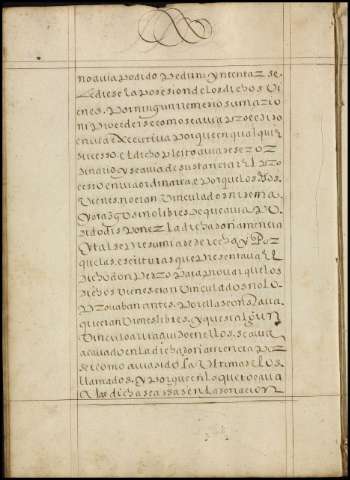 no avia podido pedir, y yntentar se
le diese la posesion de los dichos vi
enes, Por ningun rremedio sumario
ni proceder se como se avia procedido
en via executiva Porque en qualquier
sucesso el dicho pleito avia se ser or
dinario y se avia de sustanciar el pro
cesso en via ordinaria, e Porque los dhos
vienes no eran vinculados ni de ma
yorazgo sino libres de que avia po
dido disponer la dicha doña mencia
y tal se presumia se derecho, y Por
que las escrituras que presentava el
dicho don Pedro Para provar que los
dichos vienes eran vinculados no lo
Provaban antes, Por ellas constava
que eran vienes libres, y que si algun
vinculo avia avido en ellos, se avia
acavado en la dicha doña mencia Por
se como avia sido la ultima de los
llamados, y Porque en lo que tocava
a las dichas casas en la donacion